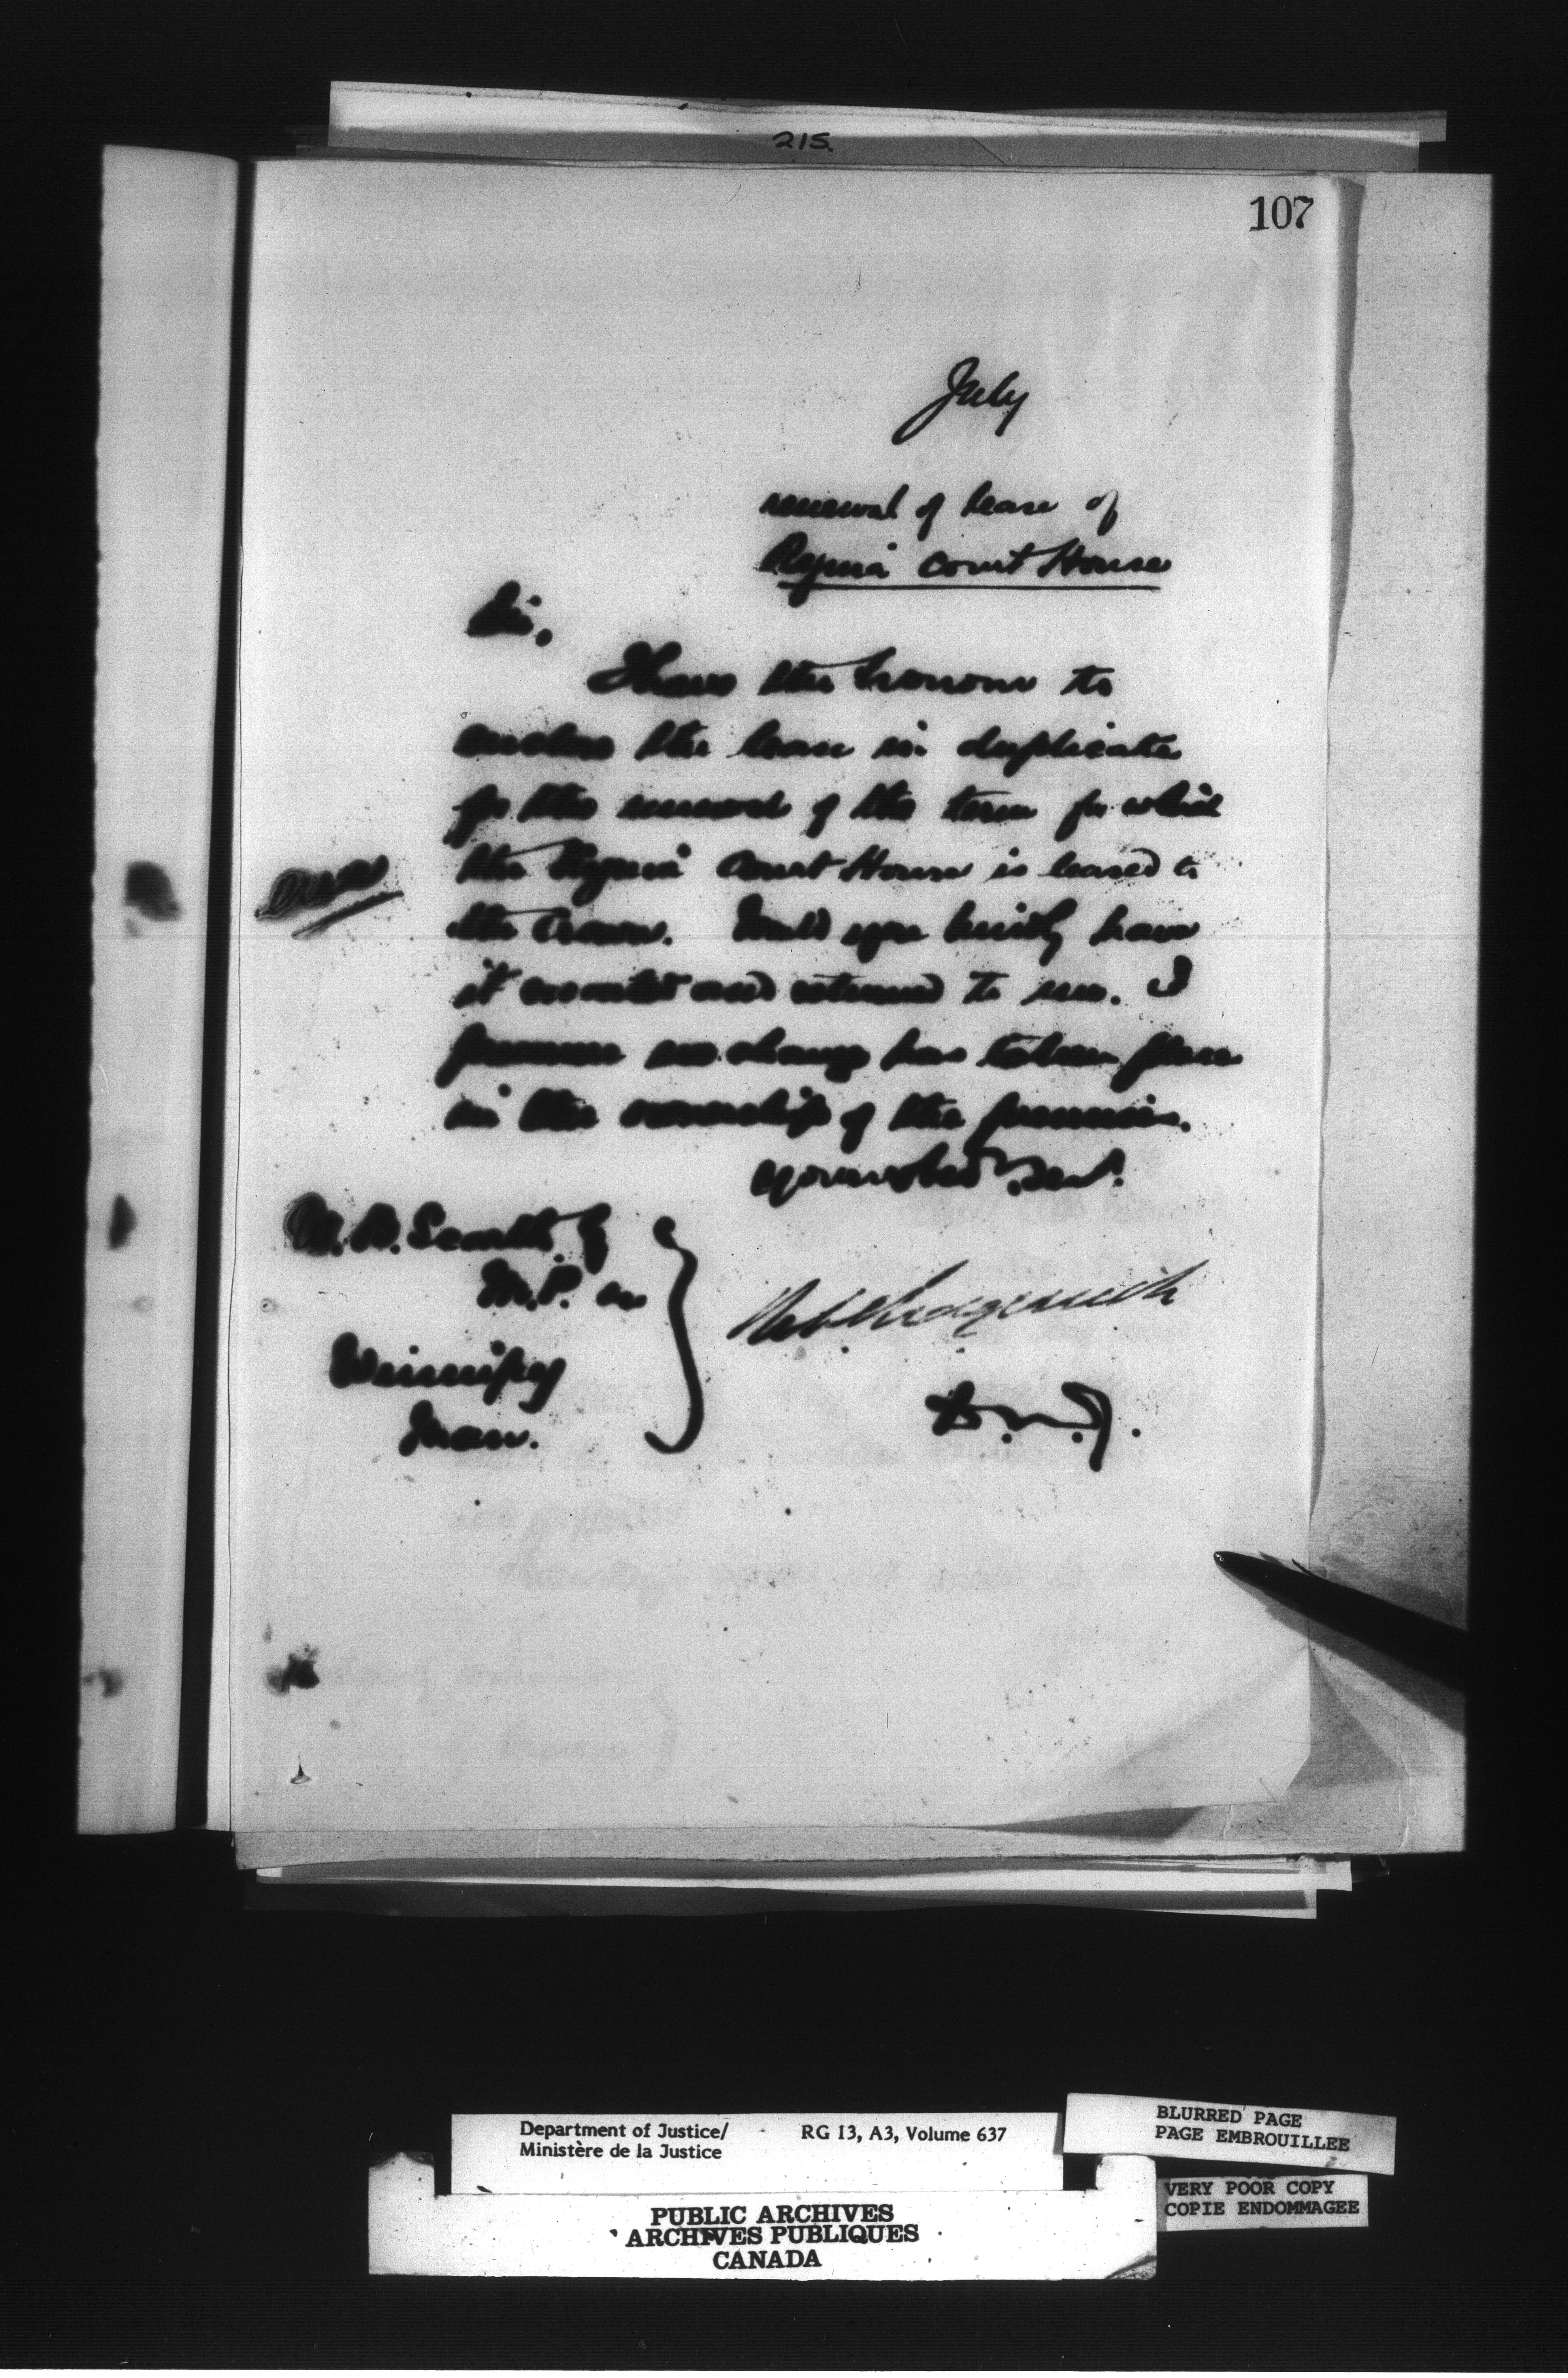 215.
107
July
renewal of lease of
Regina Court House
Sir,
I have the honour to
enclose the lease in duplicate
for the renewal of the term for which
the Regina Court House is leased to
the Crown. Would you kindly have
it executed and returned to me. I
presume no change has taken place
in the ownership of the premises.
Your obed. Servt.
W. B. Scarth Esq
M.P.
Winnipeg
Man.
Robt Sedgewick
D.M.J.
Department of Justice/ RG 13, A3, Volume 637
Ministère de la Justice
BLURRED PAGE
PAGE EMBROUILLEE
VERY POOR COPY
COPIE ENDOMMAGEE
PUBLIC ARCHIVES
ARCHIVES PUBLIQUES
CANADA